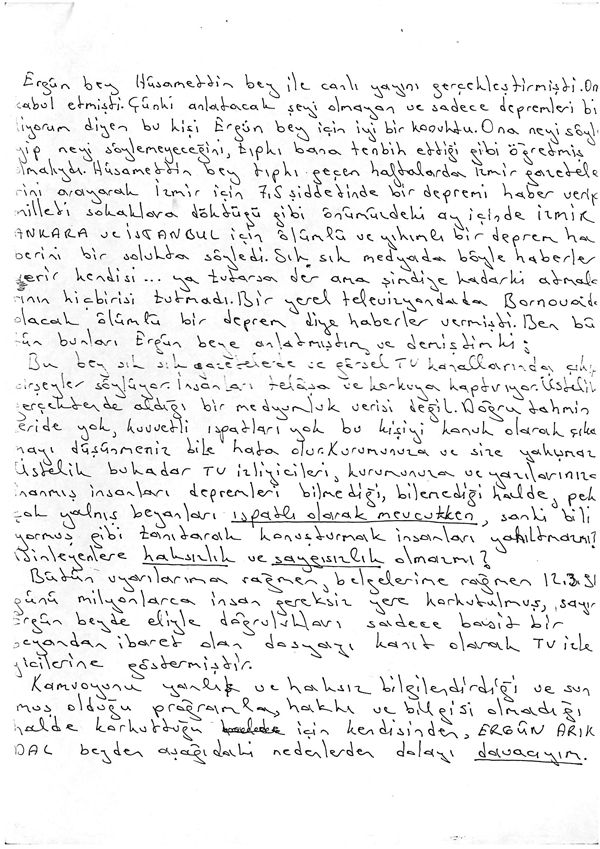 Ergün bey Hüsameddin bey ile canlı yayını gerçekleştirmişti. On
kabul etmişti. Çünki anlatacak şeyi olmayan ve sadece depremleri bi
liyorum diyen bu kişi Ergün bey için iyi bir konuktu. Ona neyi söyle
yip neyi söylemeyeceğini, tıpkı bana tenbih ettiği gibi öğretmiş
olmalıydı. Hüsameddin bey tıpkı geçen haftalarda izmir gazetele
rini arayarak izmir için 7,5 şiddetinde bir depremi haber verip
milleti sokaklara döktüğü gibi önümüzdeki ay içinde İZMİR
ANKARA ve İSTANBUL için ölümlü ve yıkımlı bir deprem ha
berini bir solukta söyledi. Sık sık medyada böyle haberler
verir kendisi... ya tutarsa der ama şimdiye kadarki atmala
rının hiçbirisi tutmadı. Bir yerel televizyondada Bornovada
olacak ölümlü bir deprem diye haberler vermişti. Ben bü
tün bunları Ergün beye anlatmıştım ve demiştimki;
Bu bey sık sık gazetelere ve görsel TV kanallarında çıkıp
birşeyler söylüyor. İnsanları telâşa ve korkuya kaptırıyor. Üstelik
gerçektende aldığı bir medyumluk verisi değil. Doğru tahmin
leride yok, kuvvetli ispatları yok bu kişiyi konuk olarak çıka
mayı düşünmeniz bile hata olur. Kurumunuza ve size yakışmaz
Üstelik bukadar TV izleyicileri, kurumunuza ve yazılarınıza
inanmış insanları depremleri bilmediği, bilemediği halde, pek
çok yalnış beyanları ıspatlı olarak mevcutken, sanki bili
yormuş gibi tanıtarak konuşturmak insanları yanıltmazmı?
Dinleyenlere haksızlık ve saygısızlık olmazmı?
Bütün uyarılarıma rağmen, belgelerime rağmen 12.3.91
günü milyonlarca insan gereksiz yere korkutulmuş, sayın
Ergün beyde eliyle doğrulukları sadece basit bir
beyandan ibaret olan dosyayı kanıt olarak TV izle
yicilerine göstermiştir.
Kamuoyunu yanlış ve haksız bilgilendirdiği ve sun
muş olduğu programla, hakkı ve bilgisi olmadığı
halde korkuttuğu için kendisinden, ERGÜN ARIK
DAL beyden aşağıdaki nedenlerden dolayı davacıyım.